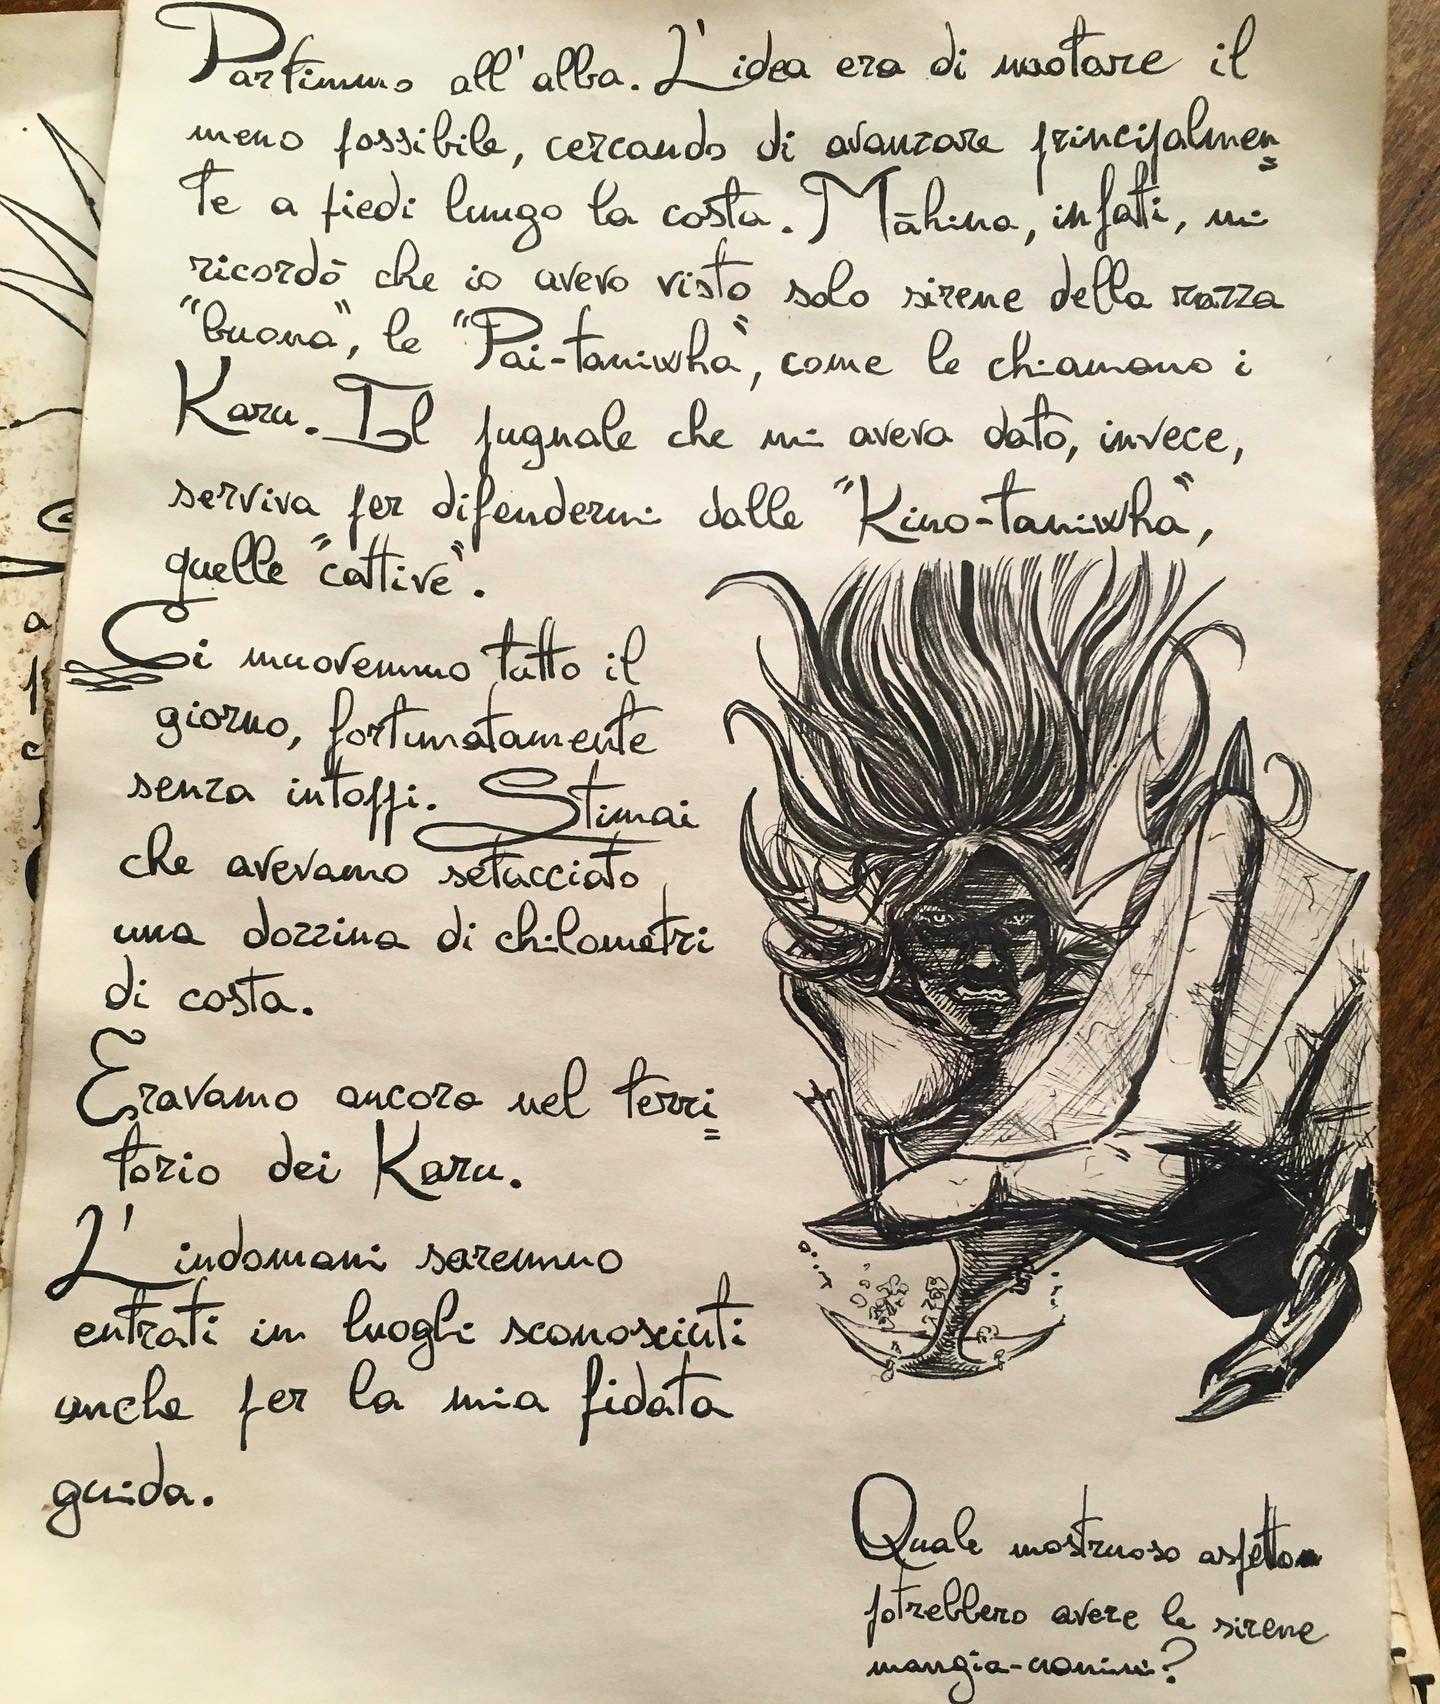 Partimmo all'alba. L'idea era di nuotare il
meno possibile, cercando di avanzare principalmen=
te a piedi lungo la costa. Māhina, infatti, mi
ricordò che io avevo visto solo sirene della razza
"buona", le "Pai-taniwha", come le chiamano i
Karu. Il pugnale che mi aveva dato, invece,
serviva per difendermi dalle "Kino-taniwha",
quelle "cattive".
Ci muovemmo tutto il
giorno, fortunatamente
senza intoppi. Stimai
che avevamo setacciato
una dozzina di chilometri
di costa.
Eravamo ancora nel terri=
torio dei Karu.
L'indomani saremmo
entrati in luoghi sconosciuti
anche per la mia fidata
guida.
Quale mostruoso aspetto
potrebbero avere le sirene
mangia-uomini?